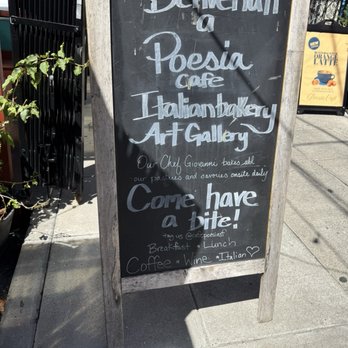 Benvenuti
a
Poesia
cafe
Italian bakery
Art Gallery
Our Chef Giovanni bakes all
our pastries and savories onsite daily
Come have
a bite!
Breakfast & Lunch
Coffee & wine Italian